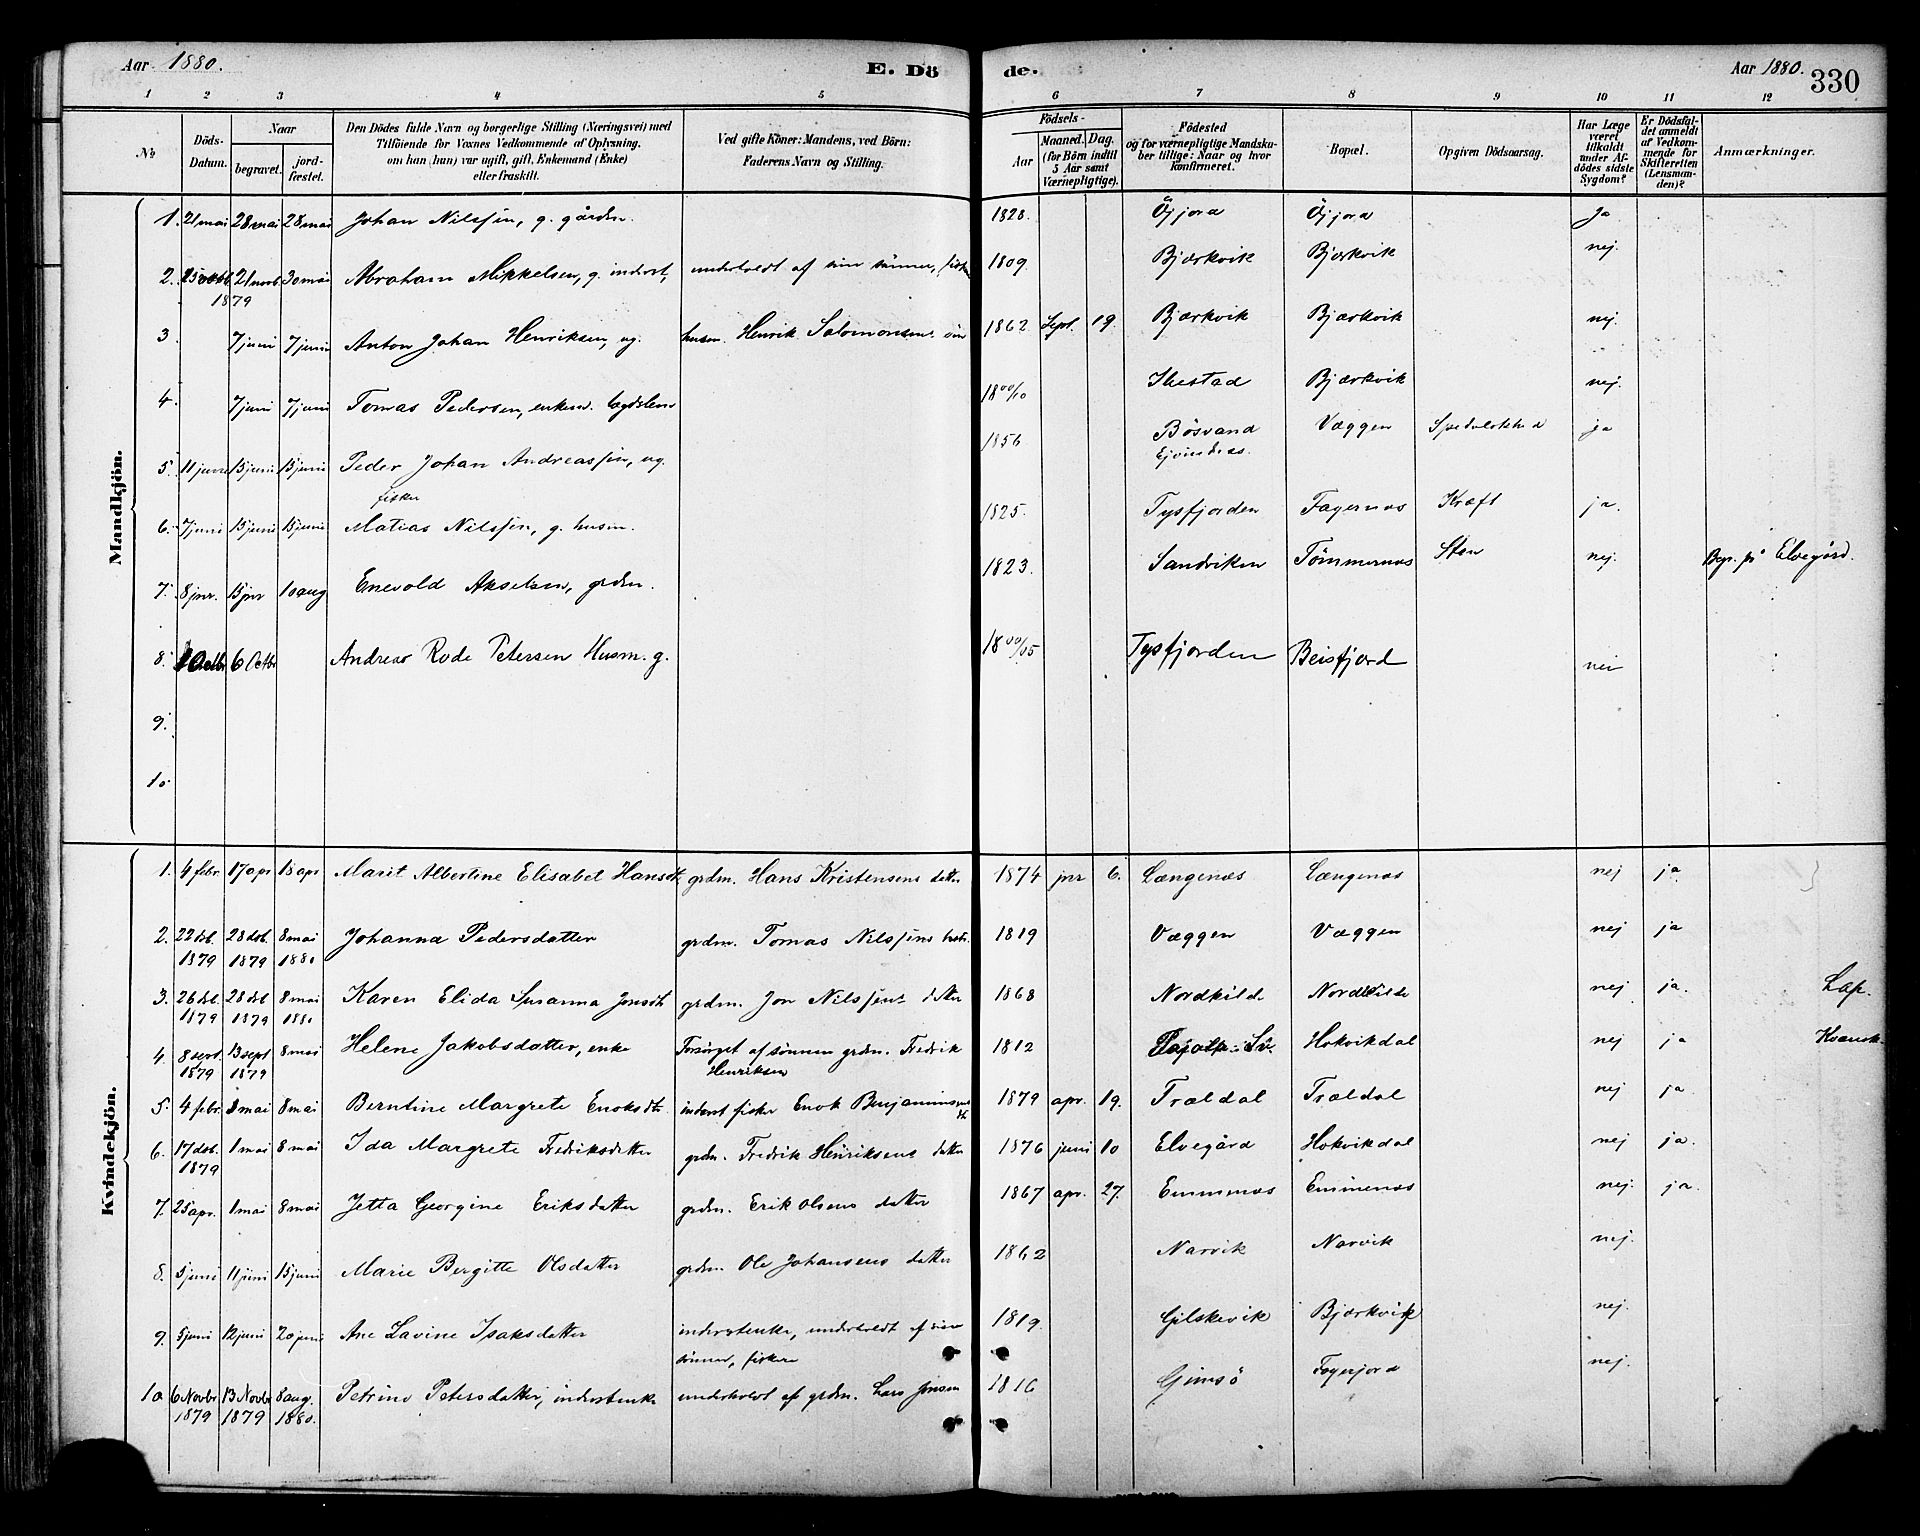 Aar 1880. E. Dö de. Aar 1880. 330
1 2 3 4 5 6 7 8 9 10 11 12
№ Döds-Datum. Naar begravet. jordfæstet. Den Dödes fulde Navn og borgerlige Stilling (Næringsvei) med Tilföiende for Voxnes Vedkommende af Oplysning, om han (hun) var ugift, gift, Enkemand (Enke) eller fraskilt. Ved gifte Koner: Mandens, ved Börn: Faderens Navn og Stilling. Födsels- Aar Maaned. Dag. (for Börn indtil 5 Aar samt Værnepligtige). Födested og for værnepligtige Mandskaber tillige: Naar og hvor konfirmeret. Bopæl. Opgiven Dödsaarsag. Har Læge været tilkaldt under Afdödes sidste Sygdom? Er Dödsfaldet anmeldt af Vedkommende for Skifteretten (Lensmanden)? Anmærkninger.
Mandkjön.
1. 21 mai 28 mai 28 mai Johan Nilssøn, g. gårdm. 1828. Öyjord Öyjord Ja
2. 25 oktb. 21 novb. 30 mai Abraham Mikkelsen, g. inderst, underholdt af sine sönner, fisk 1809. Bjærkvik Bjærkvik nej.
1879
3 7 juni 7 juni Anton Johan Henriksen, ug. husm. Henrik Salomonsens sön 1862 Sept. 19. Bjærkvik Bjærkvik nej.
4. 7 juni 7 juni Tomas Pedersen, enkem. lægdslem 18 00/10 Ibestad Bjærkvik nej.
5. 11 juni 15 juni 15 juni Peder Johan Andreassøn, ug. 1856 Bösvand Væggen Spedalskhed ja
fisker Ejvindnes.
6. 7 juni 15 juni 15 juni Matias Nilssøn, g. husm. 1825. Tysfjorden Fagernæs Kræft ja.
7. 8 jnr. 15 jnr 10 aug Enevold Akselsen, grdm. 1823. Sandviken Tömmernæs Sten nej. Begr. på Elvegård.
8. 1 Octbr 6 Octbr Andreas Rode Petersen Husm. g. 18 00/05 Tysfjorden Beisfjord nei
9.
10
Kvindekjön.
1. 4 febr. 17 apr 18 apr Marit Albertine Elisabet Hansdt. grdm. Hans Kristensens datter 1874 jnr 6. Længenæs Længenæs nej ja
2. 22 dsb. 28 dsb. 8 mai Johanna Pedersdatter grdm. Tomas Nilssøns hustr. 1819 Væggen Væggen nej ja
1879 1879 1880
3. 26 dsb. 28 dsb 8 mai Karen Elida Susanna Jonsdt. grdm. Jon Nilssøns datter 1868 Nordkilde Nordkilde nej ja. Lap.
1879 1879 1880
4. 8 sept. 13 sept 8 mai Helene Jakobsdatter, enke Forsörget af sönnen grdm. Fredrik 1812 Hokvikdal nej ja Kvænsk
1879 1879 Henriksen
5. 4 febr. 1 mai 8 mai Berntine Margrete Enoksdtr. inderst fisker Enok Benjaminsens dt. 1879 apr. 19. Træidal Trældal nej ja.
6. 17 dsb. 1 mai 8 mai Ida Margrete Fredriksdatter grdm. Fredrik Henriksens datter 1876 juni 10 Elvegård Hokvikdal nej ja.
1879
7. 25 apr. 1 mai 8 mai Jetta Georgine Eriksdatter grdm. Erik Olsens datter 1867 apr. 27. Emmenæs Emmenæs nej. ja.
8. 5 juni 11 juni 15 juni Marie Bergitte Olsdatter grdm. Ole Johansens datter 1862 Narvik Narvik nej.
9. 5 juni 12 juni 20 juni Ane Lavine Isaksdatter inderstenke, underholdt af sine 1819. Gilskevik Bjærkvik nej.
sönner, fiskere
10 6 Novbr 13 Novbr 8 aug. Petrine Petersdatter, inderstenke underholdt af grdm. Lars Jensen 1816 Gimsö Fagerjord nej.
1879 1879 1880.